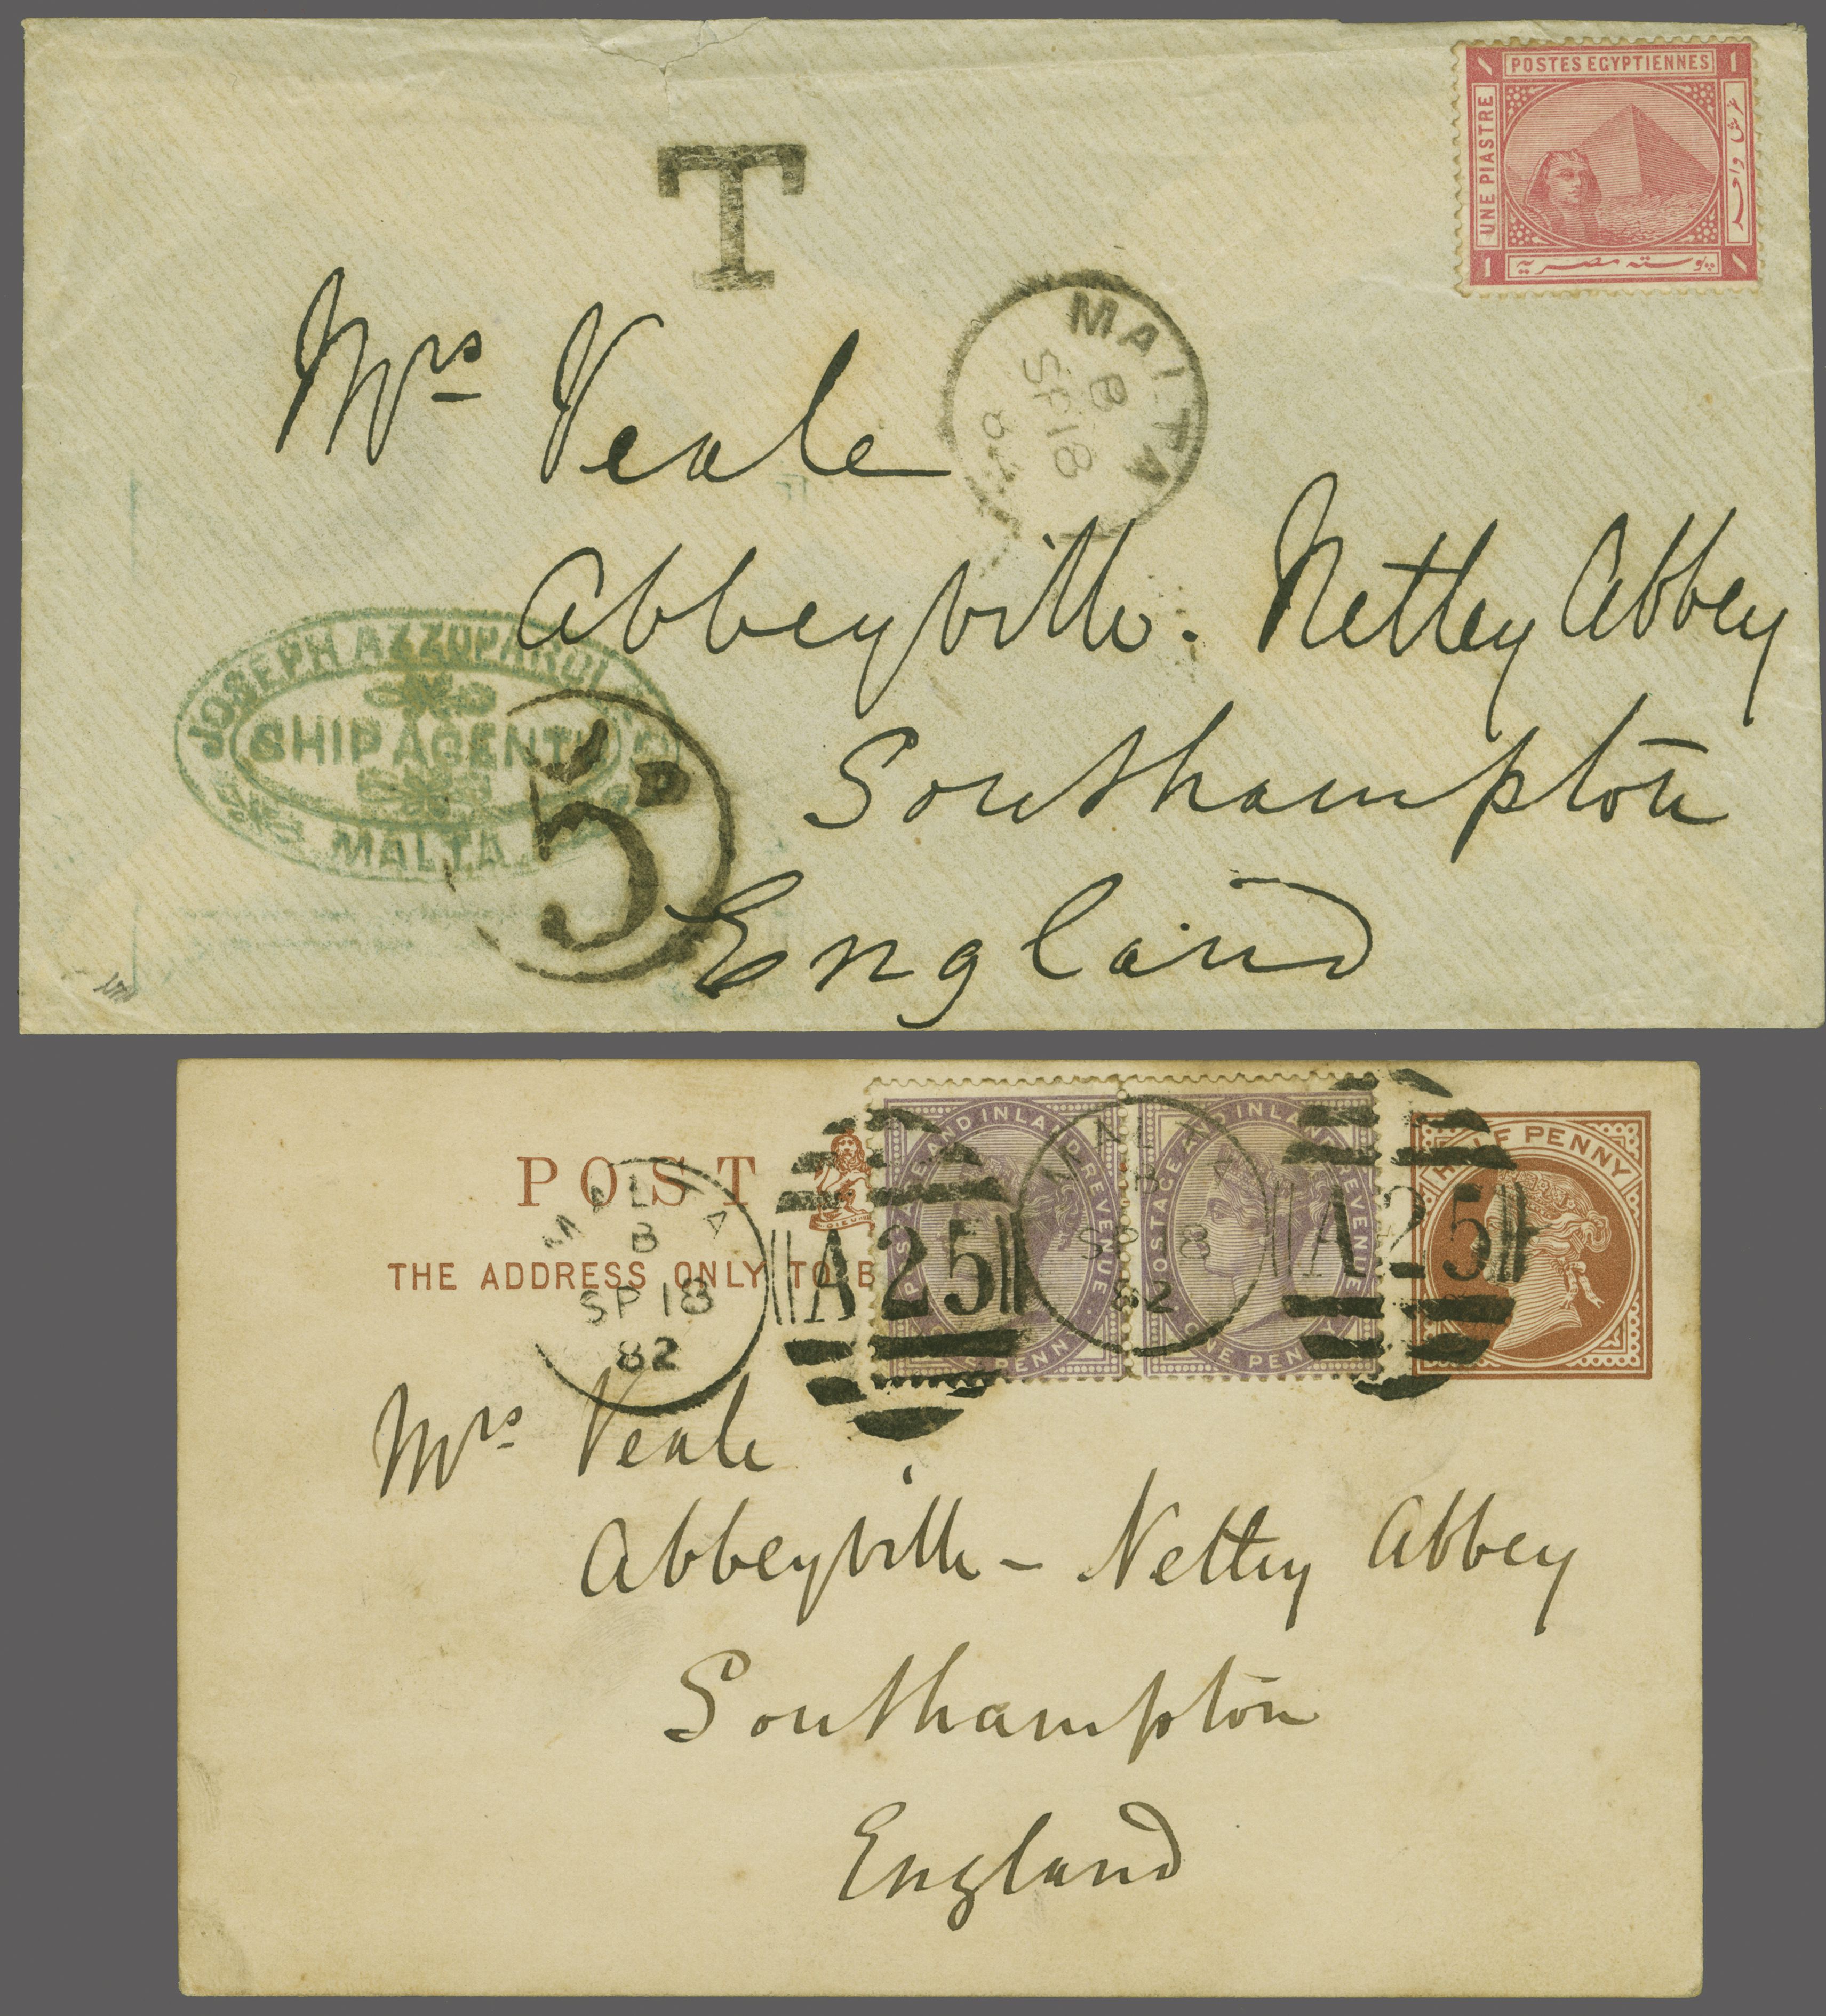 POSTES EGYPTIENNES
UNE PIASTRE
غرش واحد
پوسته مصريه
T
MALTA
B
SP 18
Mrs Veale
Abbeyville. Netley Abbey
Southampton
England
JOSEPH AZZOPARDI
SHIP AGENT
MALTA
5D
POST
THE ADDRESS ONLY TO B
MALTA
B
SP 18
82
A25
POSTAGE AND INLAND REVENUE
ONE PENNY
MALTA
B
SP 18
82
POSTAGE AND INLAND REVENUE
ONE PENNY
A25
HALF PENNY
Mrs Veale
Abbeyville - Netley Abbey
Southampton
England